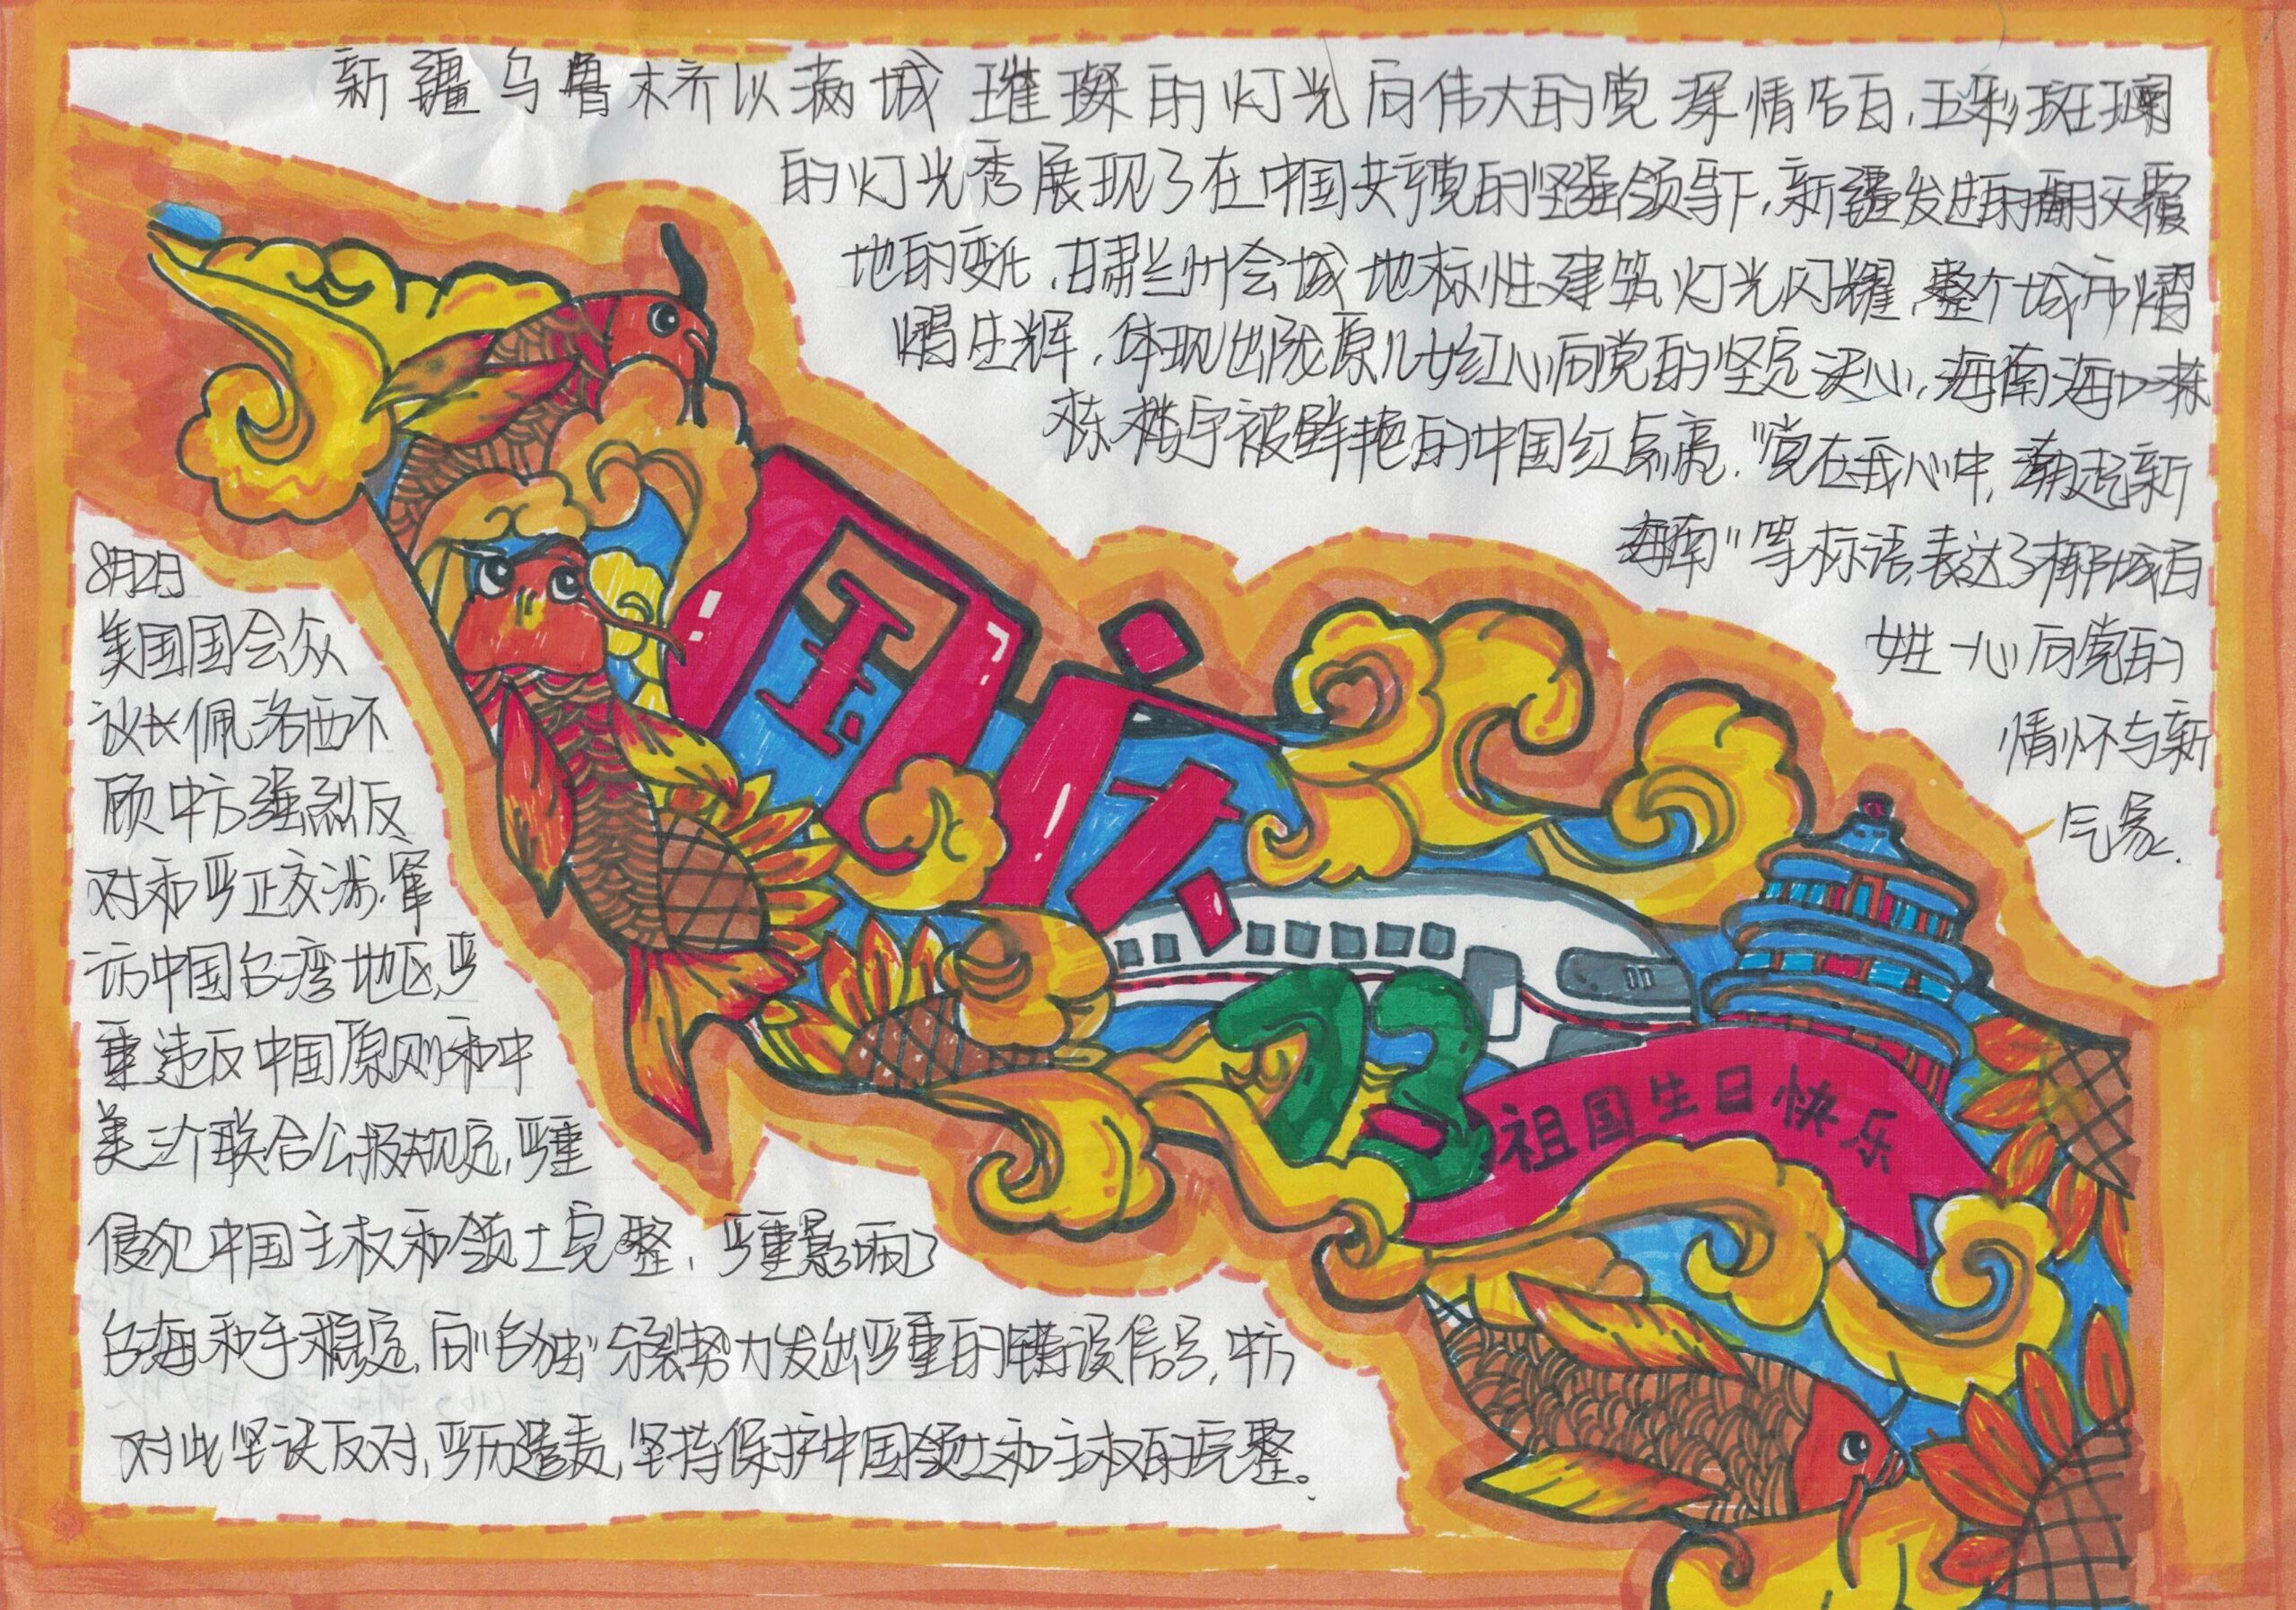 新疆乌鲁木齐以满城璀璨的灯光向伟大的党深情告白,五彩斑斓
的灯光秀展现了在中国共产党的坚强领导下,新疆发生的翻天覆
地的变化,甘肃兰州会城地标性建筑灯光闪耀,整个城市熠
熠生辉,体现出陇原儿女红心向党的坚定决心,海南海口栋
栋楼宇被鲜艳的中国红点亮,"党在我心中,潮起新
海南"等标语,表达了椰城百
姓一心向党的
情怀与新
气象.
国庆
73
祖国生日快乐
8月2日
美国国会众
议长佩洛西不
顾中方强烈反
对和严正交涉,窜
访中国台湾地区,严
重违反中国原则和中
美三个联合公报规定,严重
侵犯中国主权和领土完整,严重影响了
台海和平稳定,向"台独"分裂势力发出严重的错误信号,中方
对此坚决反对,严厉谴责,坚持保护中国领土和主权的完整。